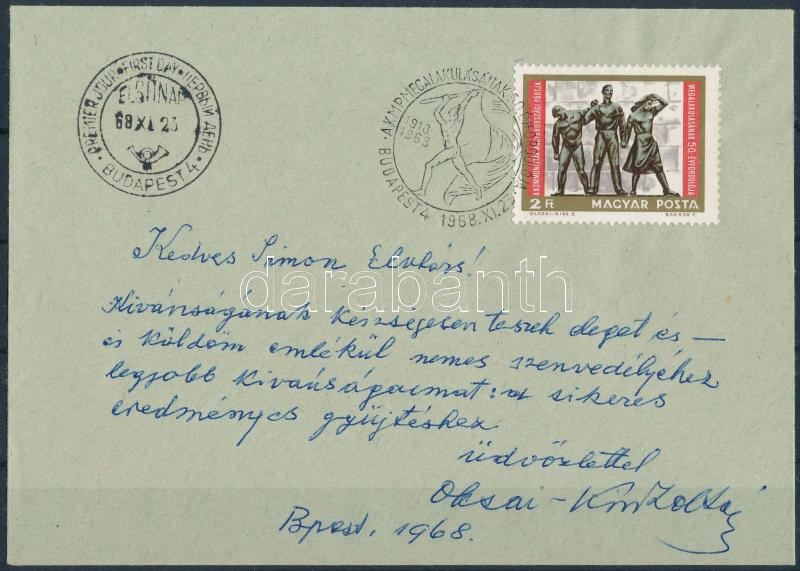 PREMIER JOUR • FIRST DAY • ПЕРВЫЙ ДЕНЬ
ELSŐ NAP
68 XI 23
• BUDAPEST 4 •
A KMP MEGALAKULÁSÁNAK 50. ÉVFORDULÓJA
1918
1968
BUDAPEST 4 1968.XI.23
A KOMMUNISTÁK MAGYARORSZÁGI PÁRTJA
MEGALAKULÁSÁNAK 50. ÉVFORDULÓJA
2 Ft MAGYAR POSTA
OLCSAI-KISS Z.
Kedves Simon Elvtárs!
darabanth
Kivánságának készségesen teszek eleget és —
és küldöm emlékül nemes szenvedélyéhez
legjobb kivánságaimat: a sikeres
eredményes gyüjtéshez
üdvözlettel
Olcsai-Kiss Zoltán
Bpest, 1968.